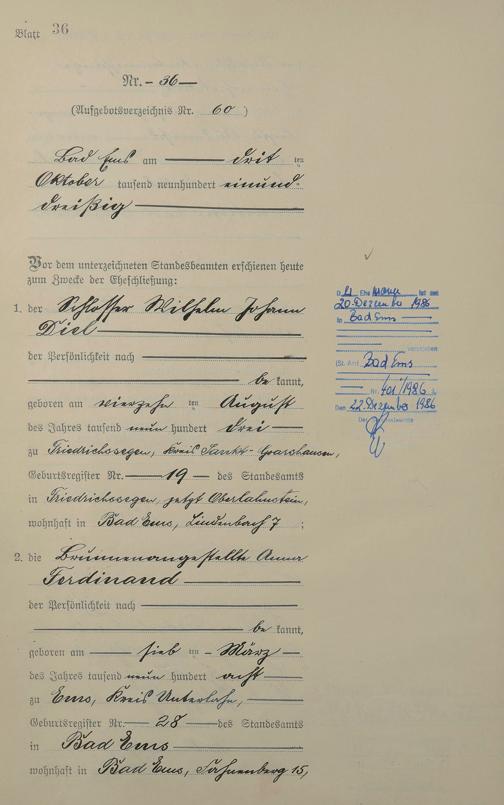 Blatt 36
Nr. - 36 —
(Aufgebotsverzeichnis Nr. 60 )
Bad Ems am — drit ten
Oktober tausend neunhundert einund-
dreißig —
Vor dem unterzeichneten Standesbeamten erschienen heute
zum Zwecke der Eheschließung:
1. der Schlosser Wilhelm Johann
Diel —
der Persönlichkeit nach —
— be kannt,
geboren am vierzehn ten August
des Jahres tausend neun hundert drei —
zu Friedrichssegen, Kreis Sankt-Goarshausen,
Geburtsregister Nr. — 19 — des Standesamts
in Friedrichssegen, jetzt Oberlahnstein,
wohnhaft in Bad Ems, Lindenbach 7 ;
2. die Brunnenangestellte Anna
Ferdinand —
der Persönlichkeit nach —
— be kannt,
geboren am — sieb ten - März —
des Jahres tausend neun hundert acht —
zu Ems, Kreis Unterlahn,
Geburtsregister Nr. — 28 — des Standesamts
in Bad Ems —
wohnhaft in Bad Ems, 15,
Ehe mann ist am
20. Dezember 1986
in Bad Ems —
verstorben
(St. Amt Bad Ems
Nr. 401/1986 )
Den 22. Dezember 1986